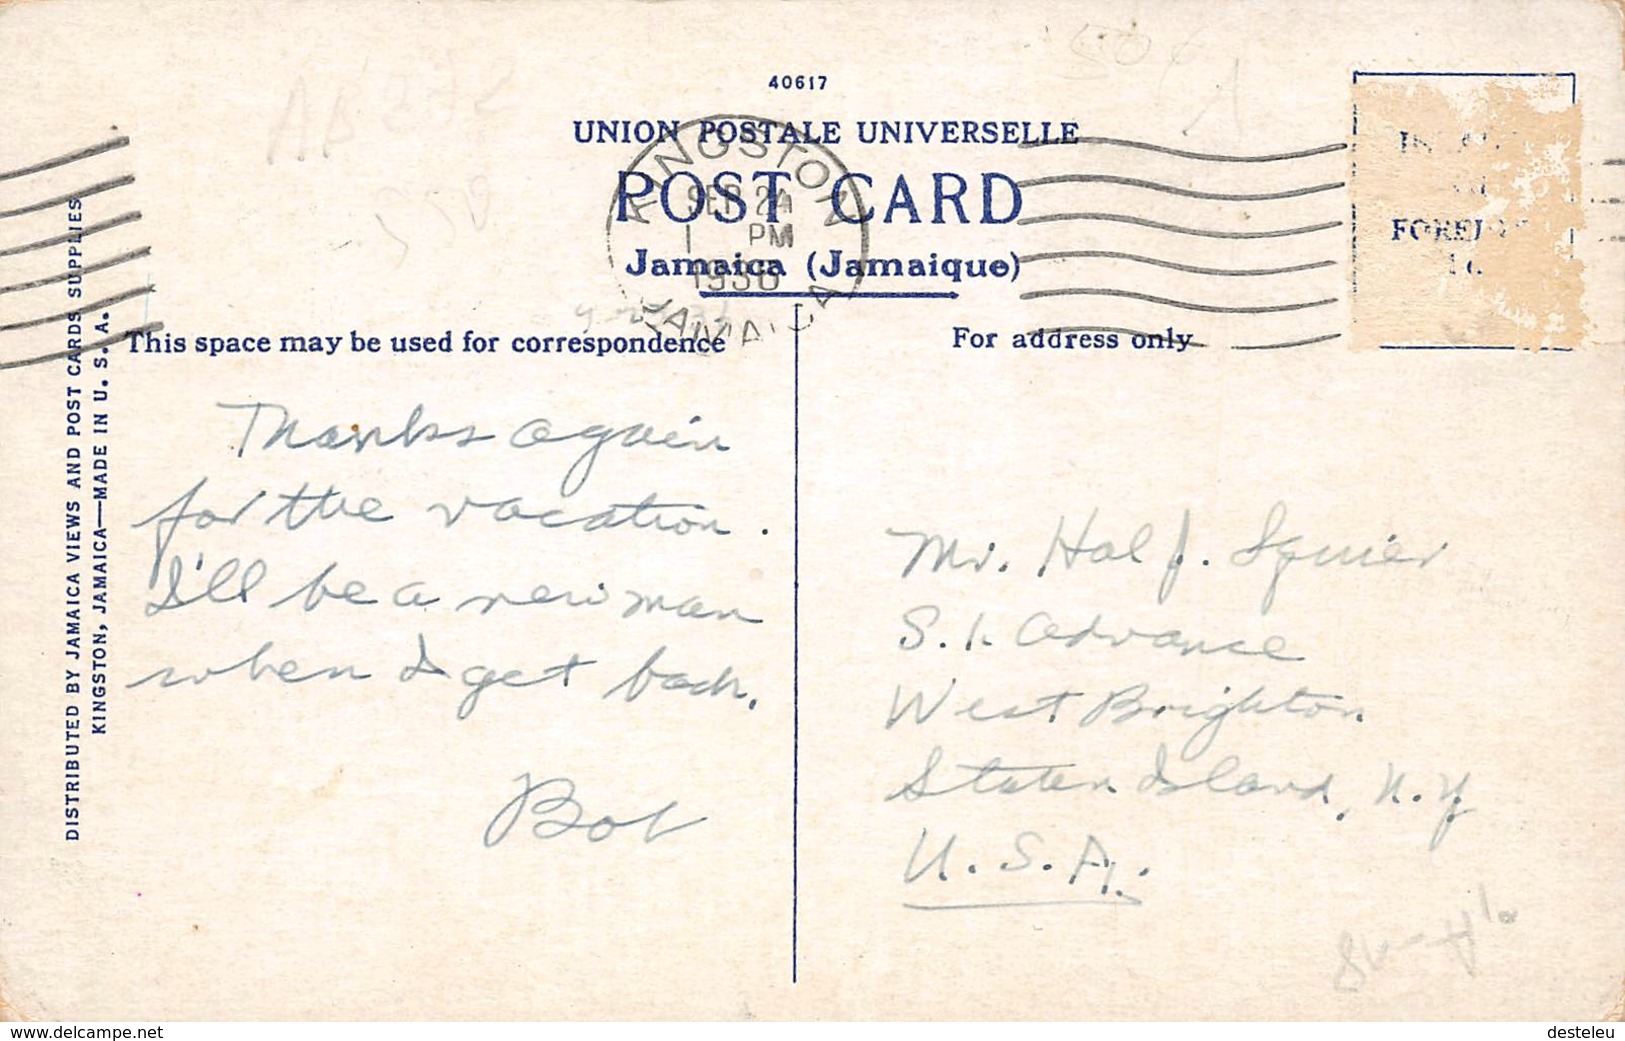 40617
UNION POSTALE UNIVERSELLE
POST CARD
Jamaica (Jamaique)
KINGSTON
SEP 24
PM
JAMAICA
This space may be used for correspondence
For address only
DISTRIBUTED BY JAMAICA VIEWS AND POST CARDS SUPPLIES
KINGSTON, JAMAICA—MADE IN U. S. A.
Thanks again
for the vacation.
I'll be a new man
when I get back.
Bob
Mr. Hal J. Squier
S. I. Advance
West Brighton
Staten Island, N.Y.
U. S. A.
www.delcampe.net
desteleu